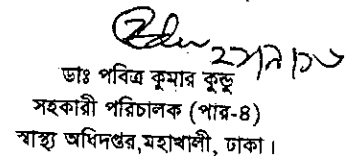 ডাঃ পবিত্র কুমার কুন্ডু
সহকারী পরিচালক (পার-৪)
স্বাস্থ্য অধিদপ্তর,মহাখালী, ঢাকা।